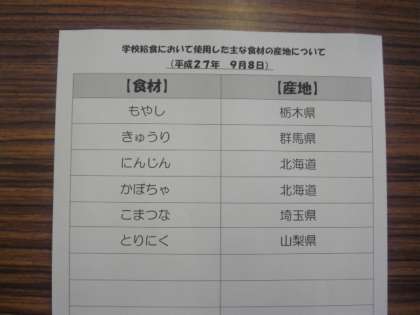 学校給食において使用した主な食材の産地について
（平成２７年　９月８日）
【食材】　【産地】
もやし　栃木県
きゅうり　群馬県
にんじん　北海道
かぼちゃ　北海道
こまつな　埼玉県
とりにく　山梨県